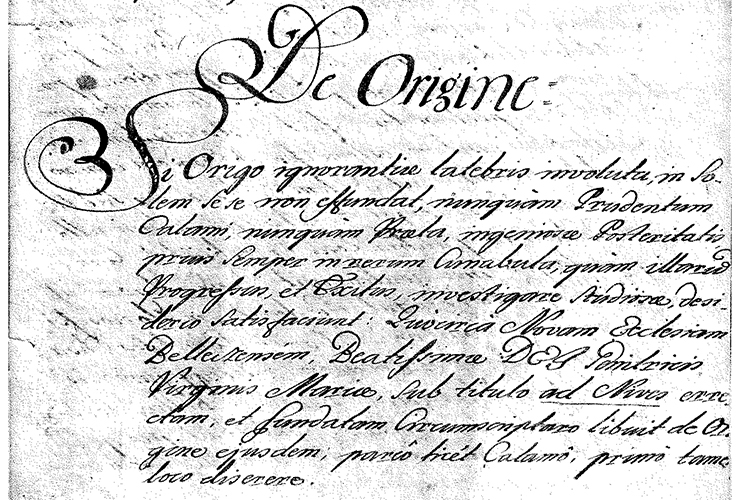 De Origine
Si Origo ignorantiæ latebris involuta, in So-
lem sese non effundat, nunquam Prudentum
Calami, nunquam Præla, ingeniosæ Posteritatis
prius semper in rerum Cunabula, quam illarum
Progressus, et Exitus, investigare studiosæ, desi-
derio satisfaciunt: Quocirca Novam Ecclesiam
Beatissimæ DEI Genitricis
Virginis Mariæ, sub titulo ad Nives erre-
ctam, et fundatam libuit de Ori-
gine ejusdem, parcô licét Calamô, primô tame
loco diserere.